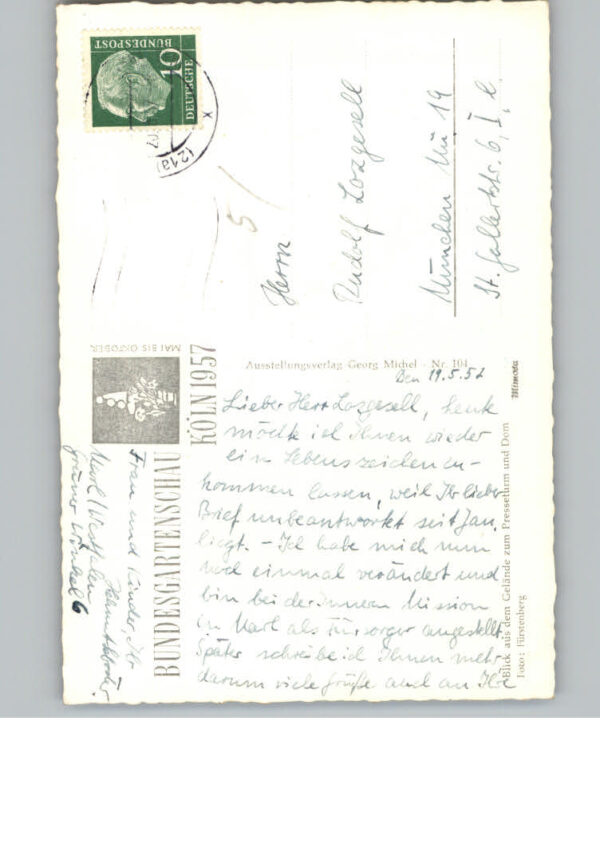 DEUTSCHE
BUNDESPOST
10
(21a)
5/
Herrn
Rudolf Lozgesell
München Mü 19
St. Gallerstr. 6, I. r.
BUNDESGARTENSCHAU
KÖLN 1957
MAI BIS OKTOBER
Ausstellungsverlag Georg Michel - Nr. 104
Mimosa
Blick aus dem Gelände zum Presseturm und Dom
Foto: Fürstenberg
Den 19.5.57
Lieber Herr Lozgesell, heute
möchte ich Ihnen wieder
ein Lebenszeichen zu-
kommen lassen, weil Ihr lieber
Brief unbeantwortet seit Jan.
liegt. - Ich habe mich nun
noch einmal verändert und
bin bei der Innern Mission
in Marl als Fürsorger angestellt.
Später schreibe ich Ihnen mehr
darum viele Grüße auch an Ihre
Frau und Kinder, Ihr
Marl/Westfalen
Grüner Winkel 6